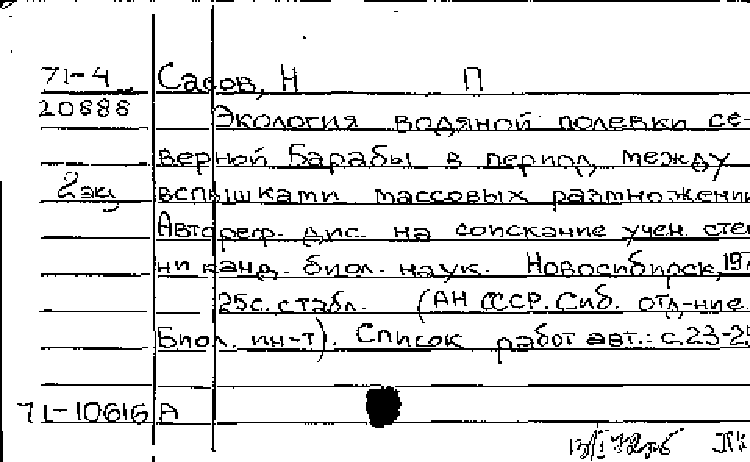 71-4 Сасов, Н П
20888 Экология водяной полевки се-
верной Барабы в период между
2 экз вспышками массовых размножени
Автореф. дис. на соискание учен. сте
ни канд. биол. наук. Новосибирск, 197
25 с. с табл. (АН СССР. Сиб. отд-ние.
Биол. ин-т). Список работ авт.: с. 23-25
71-10616 А